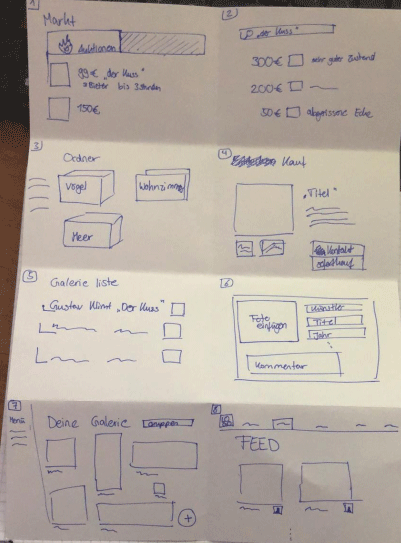 1
Markt
Auktionen
99€ „der Kuss"
bis
150€
2
„der Kuss"
300€ sehr guter Zustand
200€
50€ abgerissene Ecke
3
Ordner
Vögel
Wohnzimmer
Meer
4
Kauf
„Titel"
Kontakt
Sofortkauf
5
Galerie liste
Gustav Klimt „Der Kuss"
6
Foto
einfügen
Künstler
Titel
Jahr
Kommentar
7
Menü
Deine Galerie
8
FEED